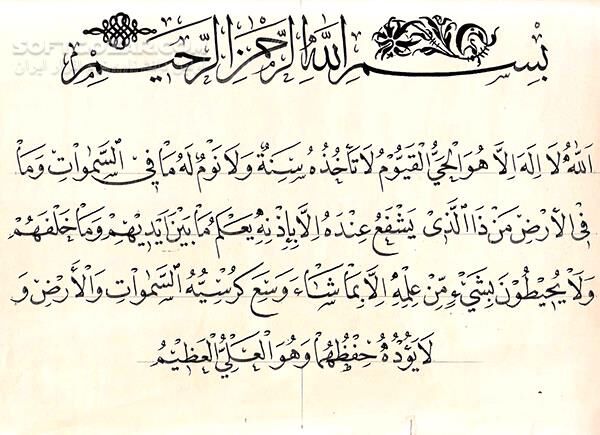 بِسْمِ اللهِ الرَّحْمٰنِ الرَّحِيمِ
اَللهُ لَا اِلٰهَ اِلَّا هُوَ الْحَيُّ الْقَيُّومُ لَا تَأْخُذُهُ سِنَةٌ وَلَا نَوْمٌ لَهُ مَا فِي السَّمٰوَاتِ وَمَا
فِي الْاَرْضِ مَنْ ذَا الَّذِى يَشْفَعُ عِنْدَهُ اِلَّا بِاِذْنِهِ يَعْلَمُ مَا بَيْنَ اَيْدِيهِمْ وَمَا خَلْفَهُمْ
وَلَا يُحِيطُونَ بِشَيْءٍ مِنْ عِلْمِهِ اِلَّا بِمَا شَاءَ وَسِعَ كُرْسِيُّهُ السَّمٰوَاتِ وَالْاَرْضَ وَ
لَا يَؤُدُهُ حِفْظُهُمَا وَهُوَ الْعَلِيُّ الْعَظِيمُ